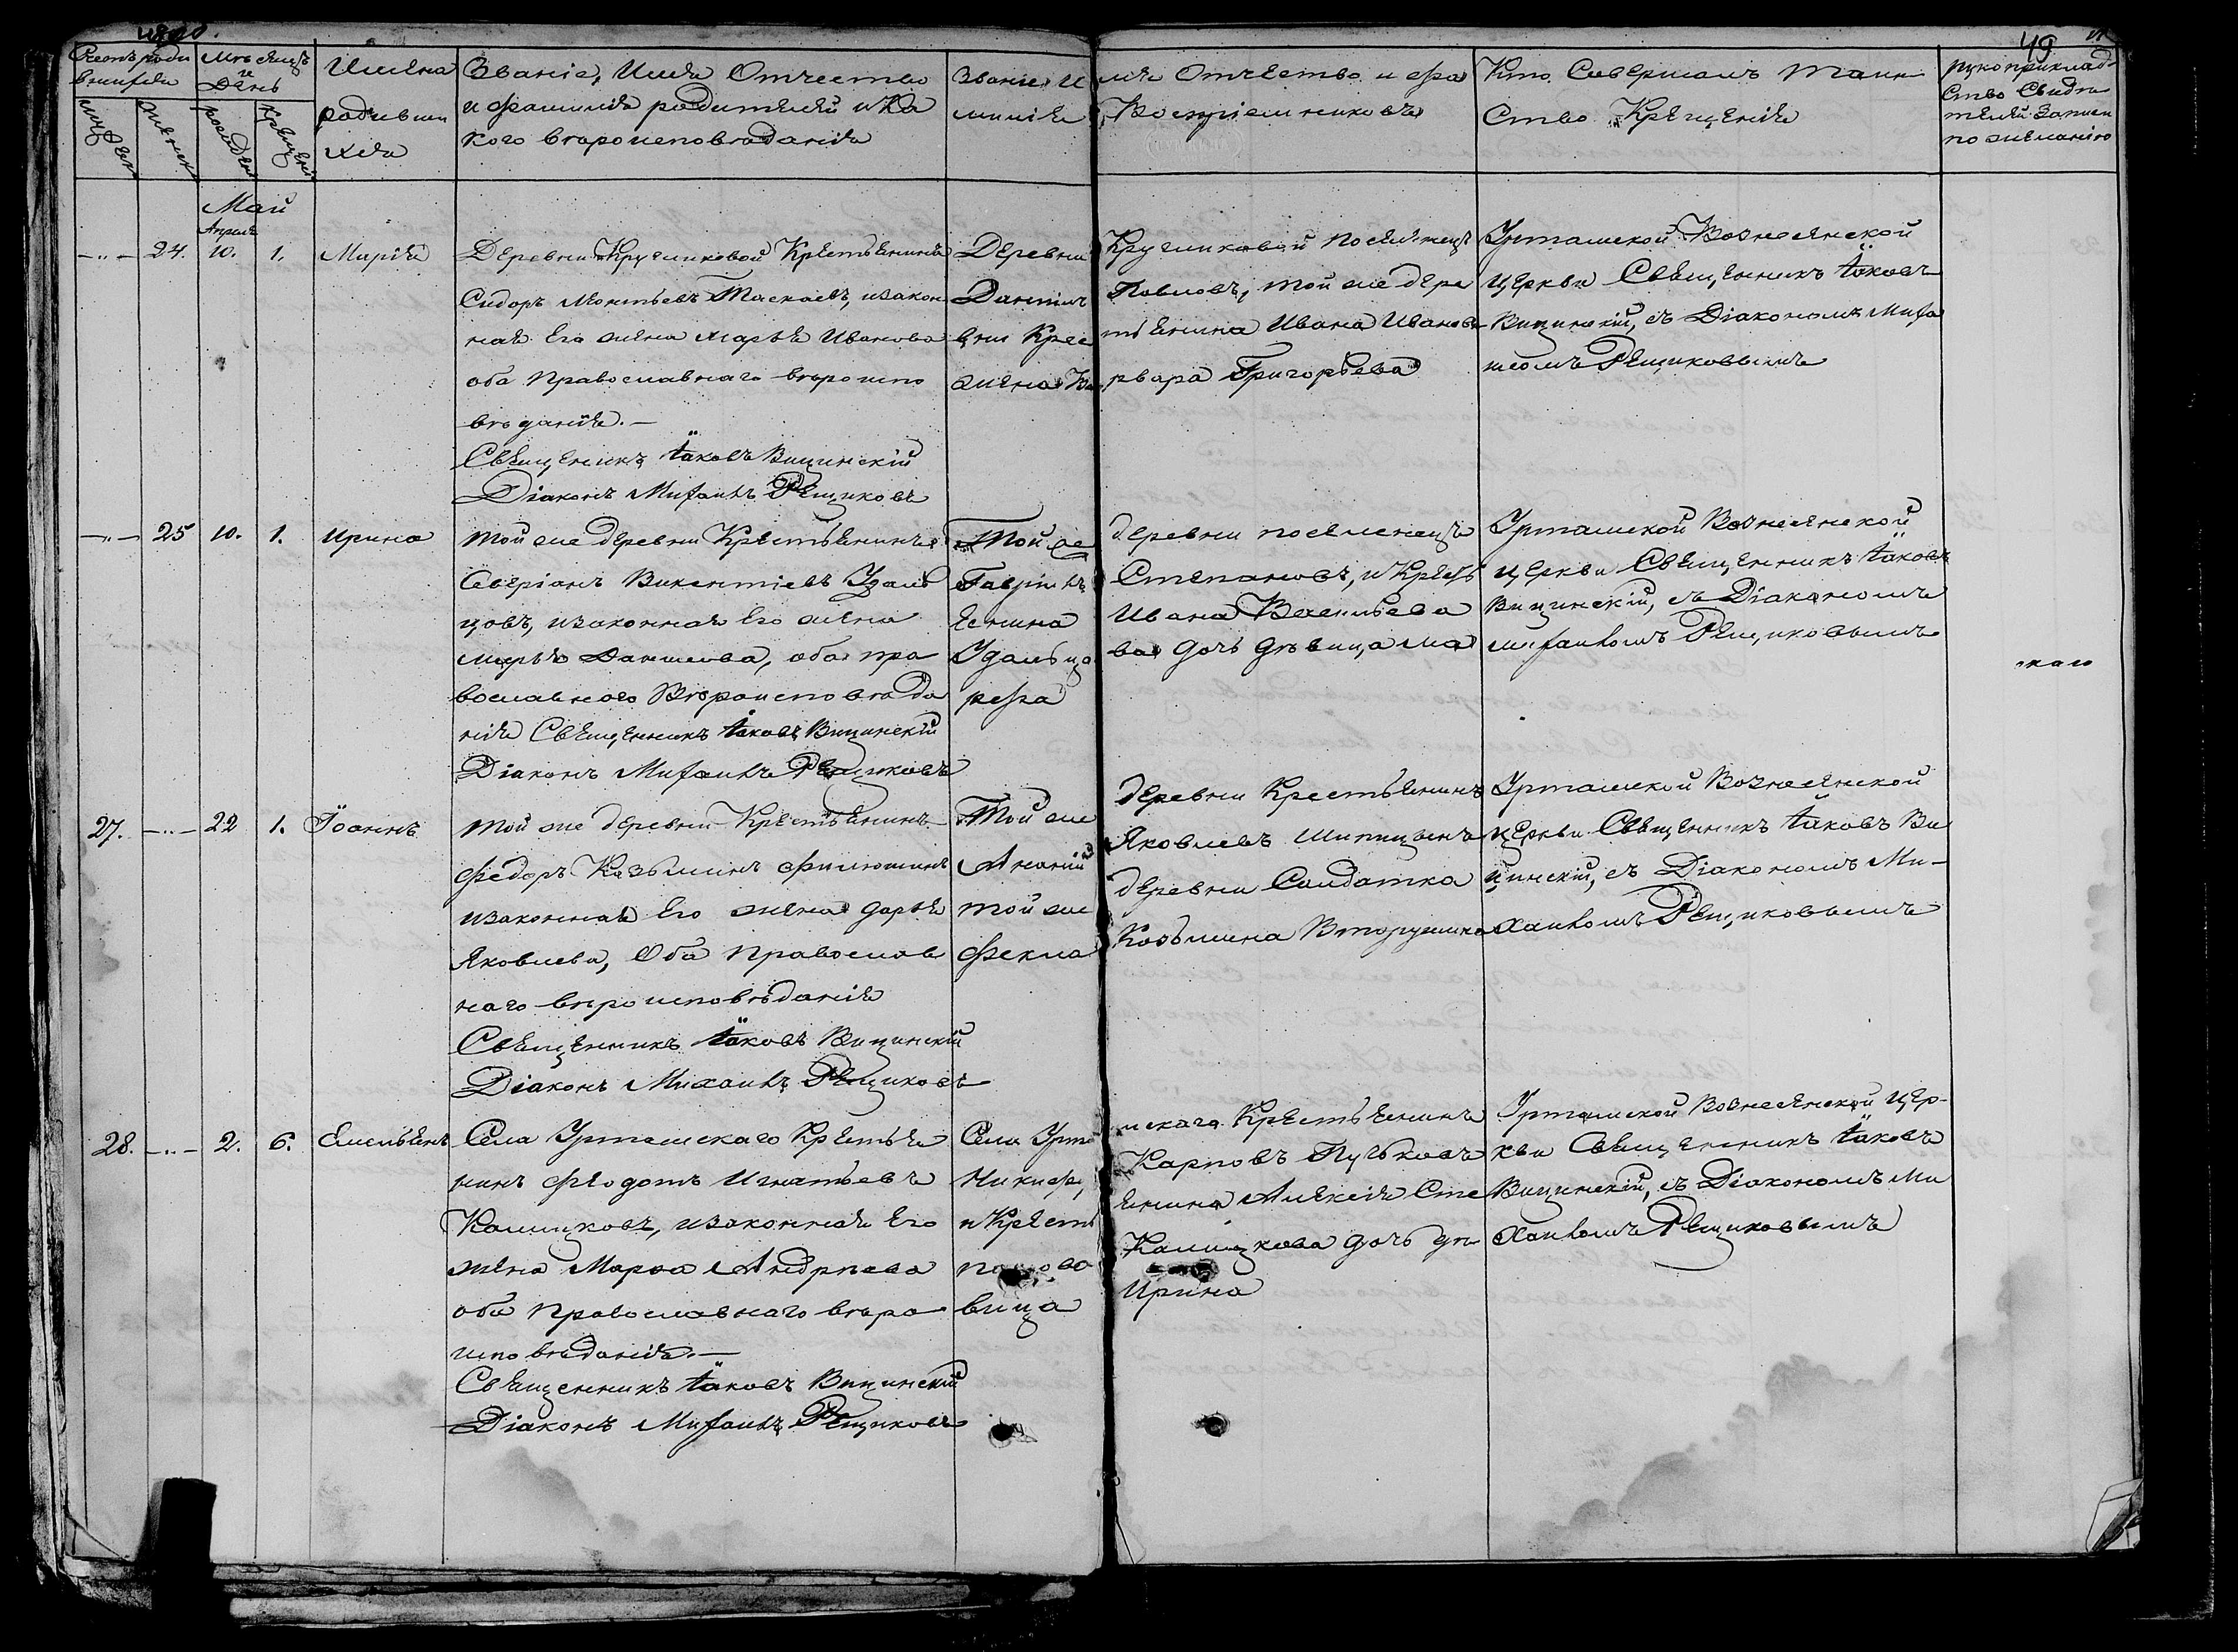 49
Счетъ роди
вшихся
Мѣсяцъ
и
День
муж. пол.
женск.
рожденія
Крещенія
Имена
родивши
хся
Званіе, Имя Отчество
и фамилія родителей и Ка
кого вѣроисповѣданія
Званіе И
мя Отчество и фа
милія
Воспріемниковъ
Кто Совершалъ Таин
Ство Крещенія
рукоприклад
Ство Свидѣ
телей Записи
по желанію
Май
Апрель
24. 10. 1. Марія
Деревни Кругликовой Крестьянинъ
Сидоръ Леонтьевъ Таскаевъ, изакон
ная Его жена Марья Иванова
оба Православнаго вѣроиспо
вѣданія.—
Священникъ Іаковъ Вицинскій
Діаконъ Михаилъ Рещиковъ
Деревни Кругликовой поселенецъ
Даніилъ Павловъ, той же дере
вни Крестьянина Ивана Иванова
жена Варвара Григорьева
Урташской Вознесенской
церкви Священникъ Іаковъ
Вицинскій, съ Діакономъ Миха
иломъ Рещиковымъ
25 10. 1. Ирина
той же деревни Крестьянинъ
Северіанъ Викентіевъ Удаль
цовъ, изаконная Его жена
Марья Данилова, оба пра
вославнаго Вѣроисповѣда
нія Священникъ Іаковъ Вицинскій
Діаконъ Михаилъ Рещиковъ
Той же деревни поселенецъ
Гавріилъ Степановъ, и Кресть
янина Ивана Васильева
Удальцова дочь дѣвица Ма
рефа
Урташской Вознесенской
церкви Священникъ Іаковъ
Вицинскій, съ Діакономъ
Михаиломъ Рещиковымъ
27. 22 1. Іоаннъ
той же деревни Крестьянинъ
Федоръ Козьминъ Филюшинъ
изаконная Его жена Дарья
Яковлева, Оба Православ
наго вѣроисповѣданія
Священникъ Іаковъ Вицинскій
Діаконъ Михаилъ Рещиковъ
Той же деревни Крестьянинъ
Ананій Яковлевъ Шипицынъ
той же деревни Солдатка
Фекла Козьмина Вторушина
Урташской Вознесенской
церкви Священникъ Іаковъ Ви
цинскій, съ Діакономъ Ми-
хаиломъ Рещиковымъ
28. 2. 6. Емельянъ
Села Урташскаго Крестья
нинъ Феодотъ Игнатьевъ
Калишковъ, изаконная Его
жена Марфа Андреева
оба Православнаго вѣро
исповѣданія.—
Священникъ Іаковъ Вицинскій
Діаконъ Михаилъ Рещиковъ
Села Урташскаго Крестьянинъ
Никиф, Карповъ Пульковъ
и Крестьянина Алексія Сте
панова Калишкова дочь дѣ
вица Ирина
Урташской Вознесенской цер-
кви Священникъ Іаковъ
Вицинскій, съ Діакономъ Ми
хаиломъ Рещиковымъ